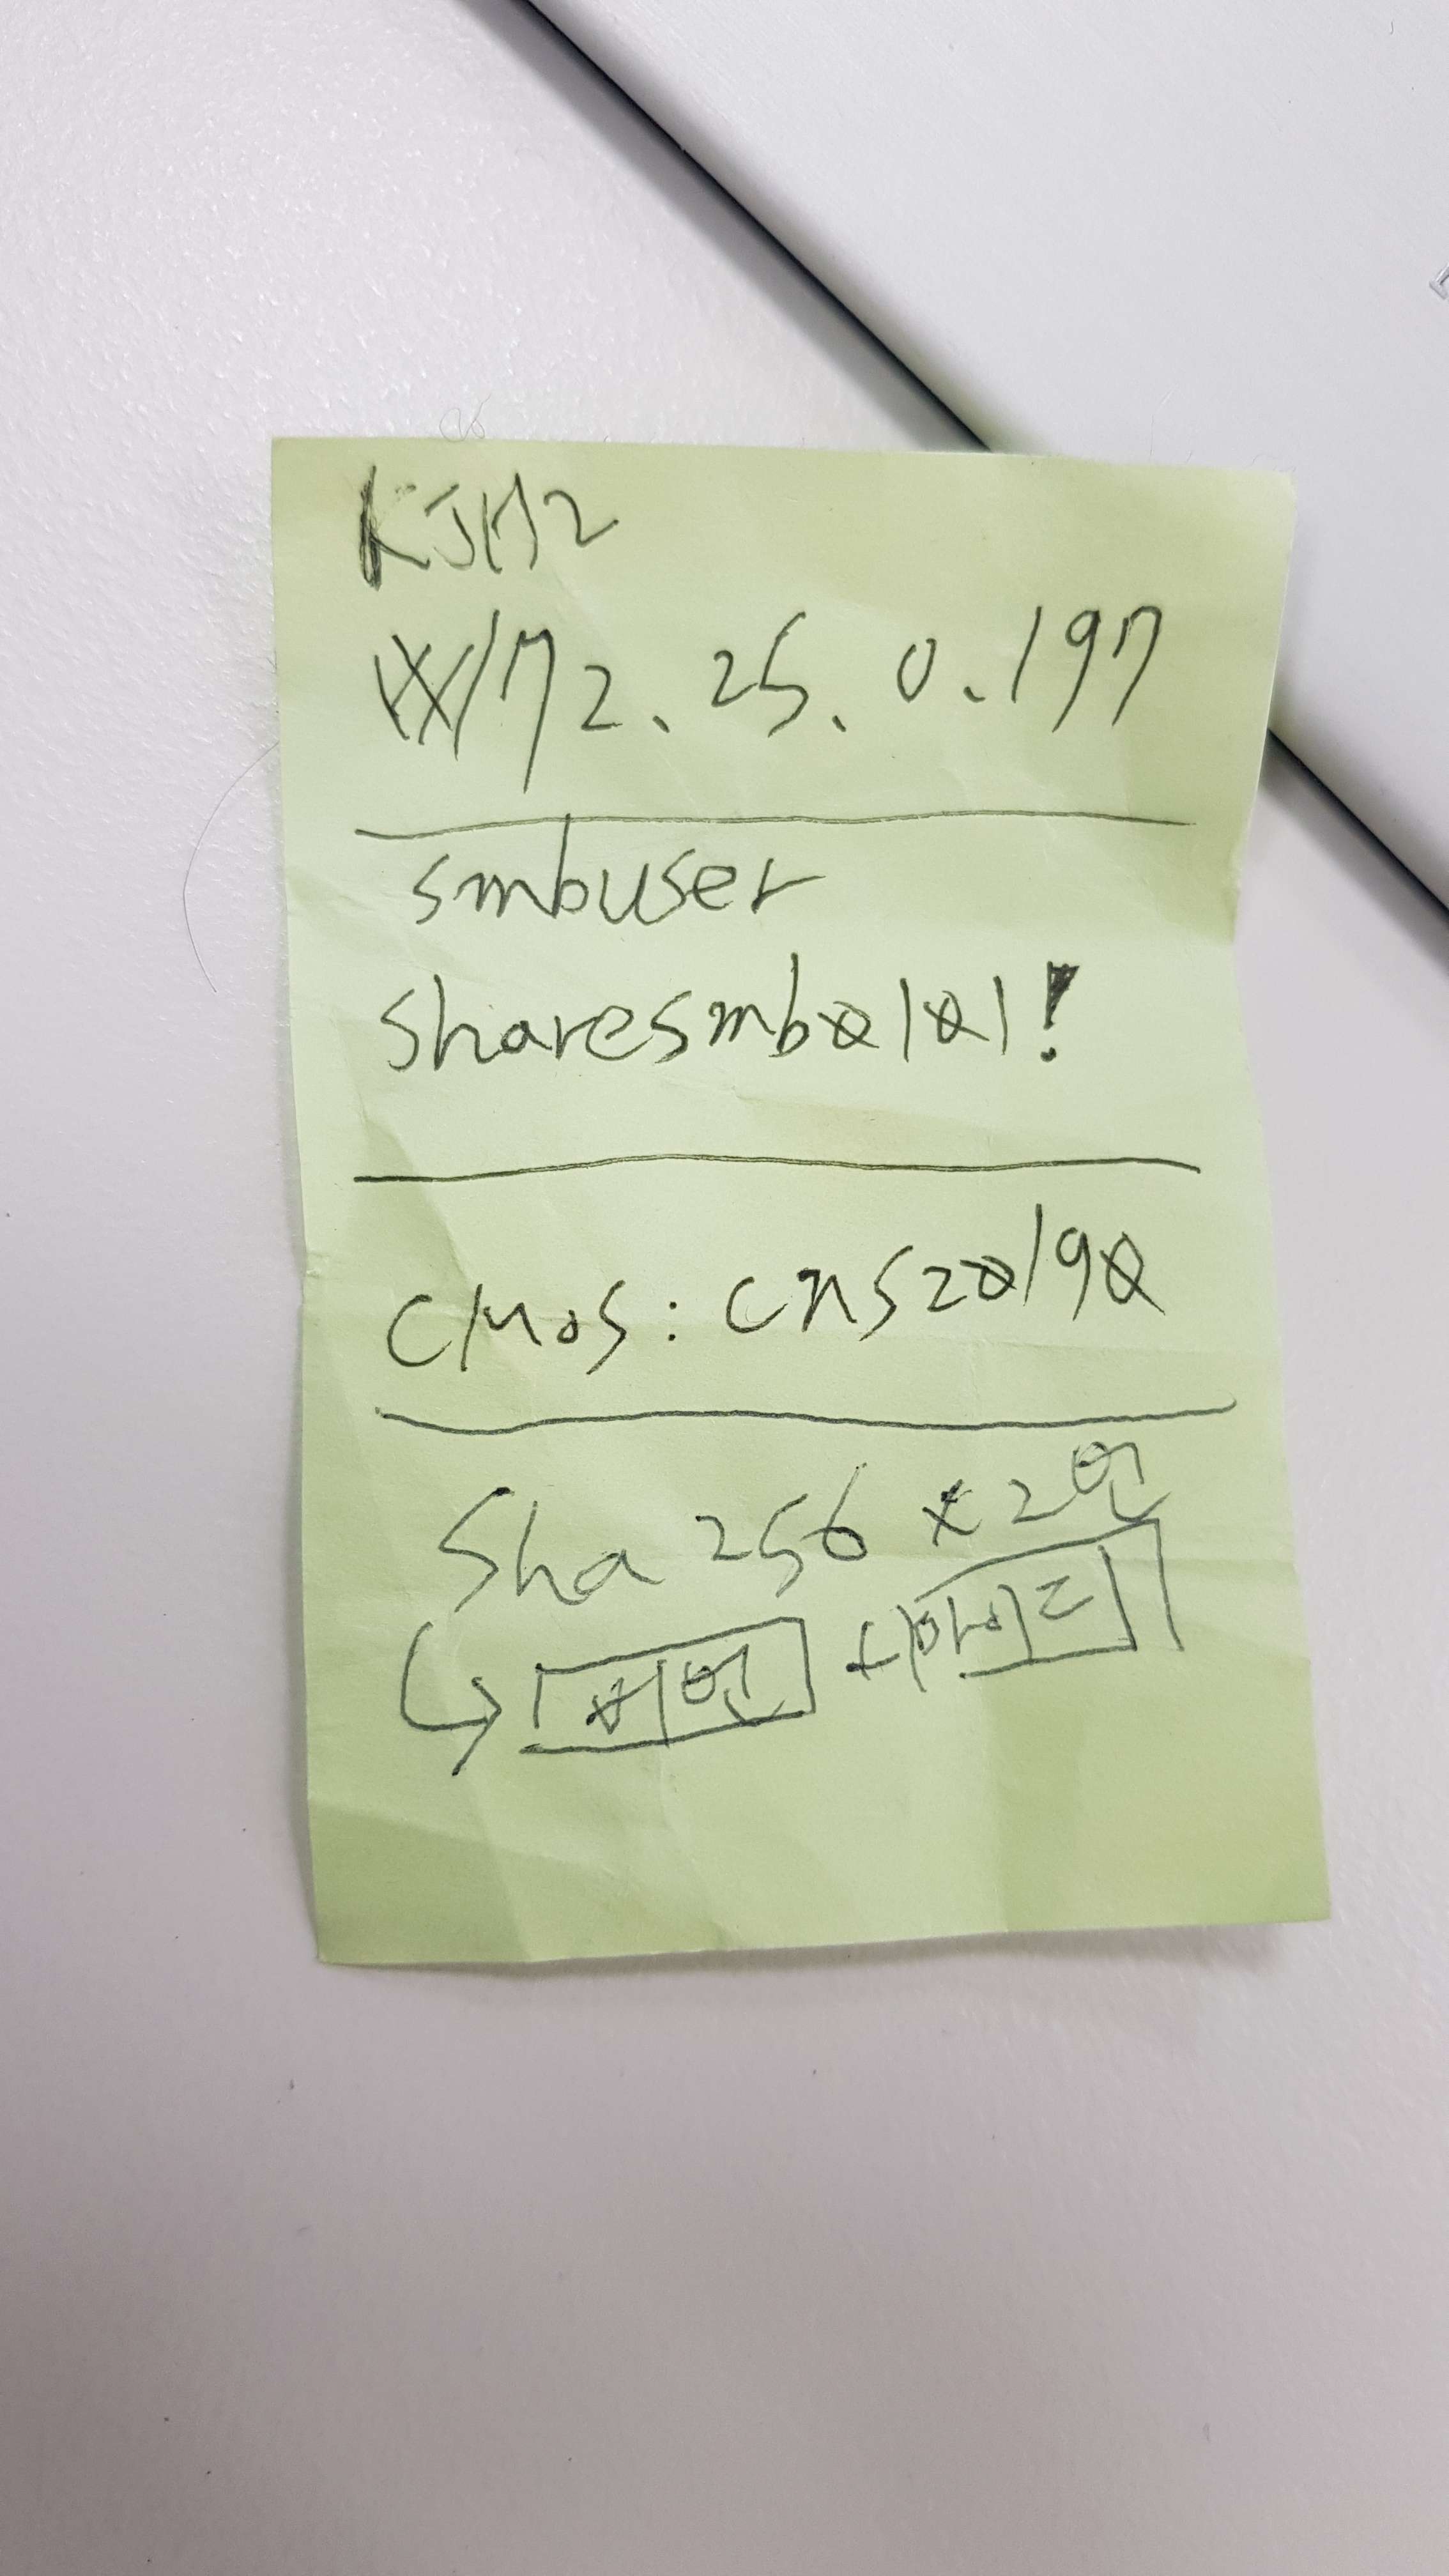 KJH2
\\172.25.0.197
smbuser
sharesmb0101!
CMOS: cns20190
Sha 256 x 2열